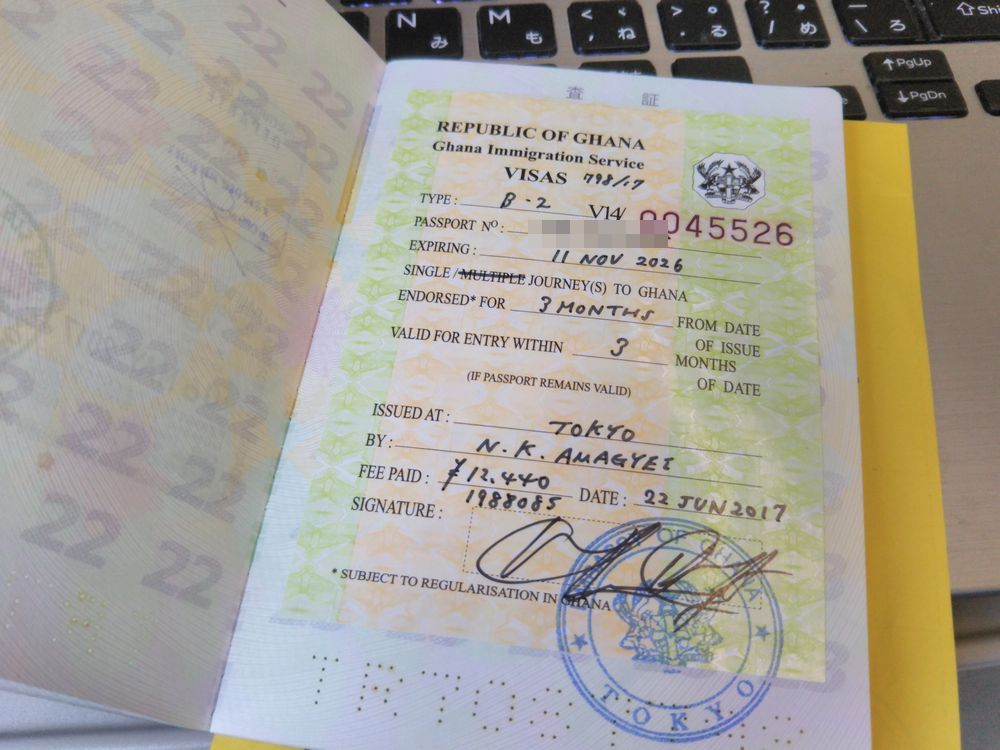 N み
M も
< 、 ね
> 。 る
? ・ / め
_ \ ろ
⇧Shi
↑PgUp
↓PgDn
査 証
REPUBLIC OF GHANA
Ghana Immigration Service
VISAS 798/17
TYPE : B-2 V14/ 0045526
PASSPORT Nº :
EXPIRING : 11 NOV 2026
SINGLE / MULTIPLE JOURNEY(S) TO GHANA
ENDORSED* FOR 3 MONTHS FROM DATE
OF ISSUE
VALID FOR ENTRY WITHIN 3 MONTHS
OF DATE
(IF PASSPORT REMAINS VALID)
ISSUED AT : TOKYO
BY : N. K. AMAGYEI
FEE PAID : ¥12,440 DATE : 22 JUN 2017
1988085
SIGNATURE :
* SUBJECT TO REGULARISATION IN GHANA
OF GHANA
TOKYO
22 22 22
22 22
22 22
22 22